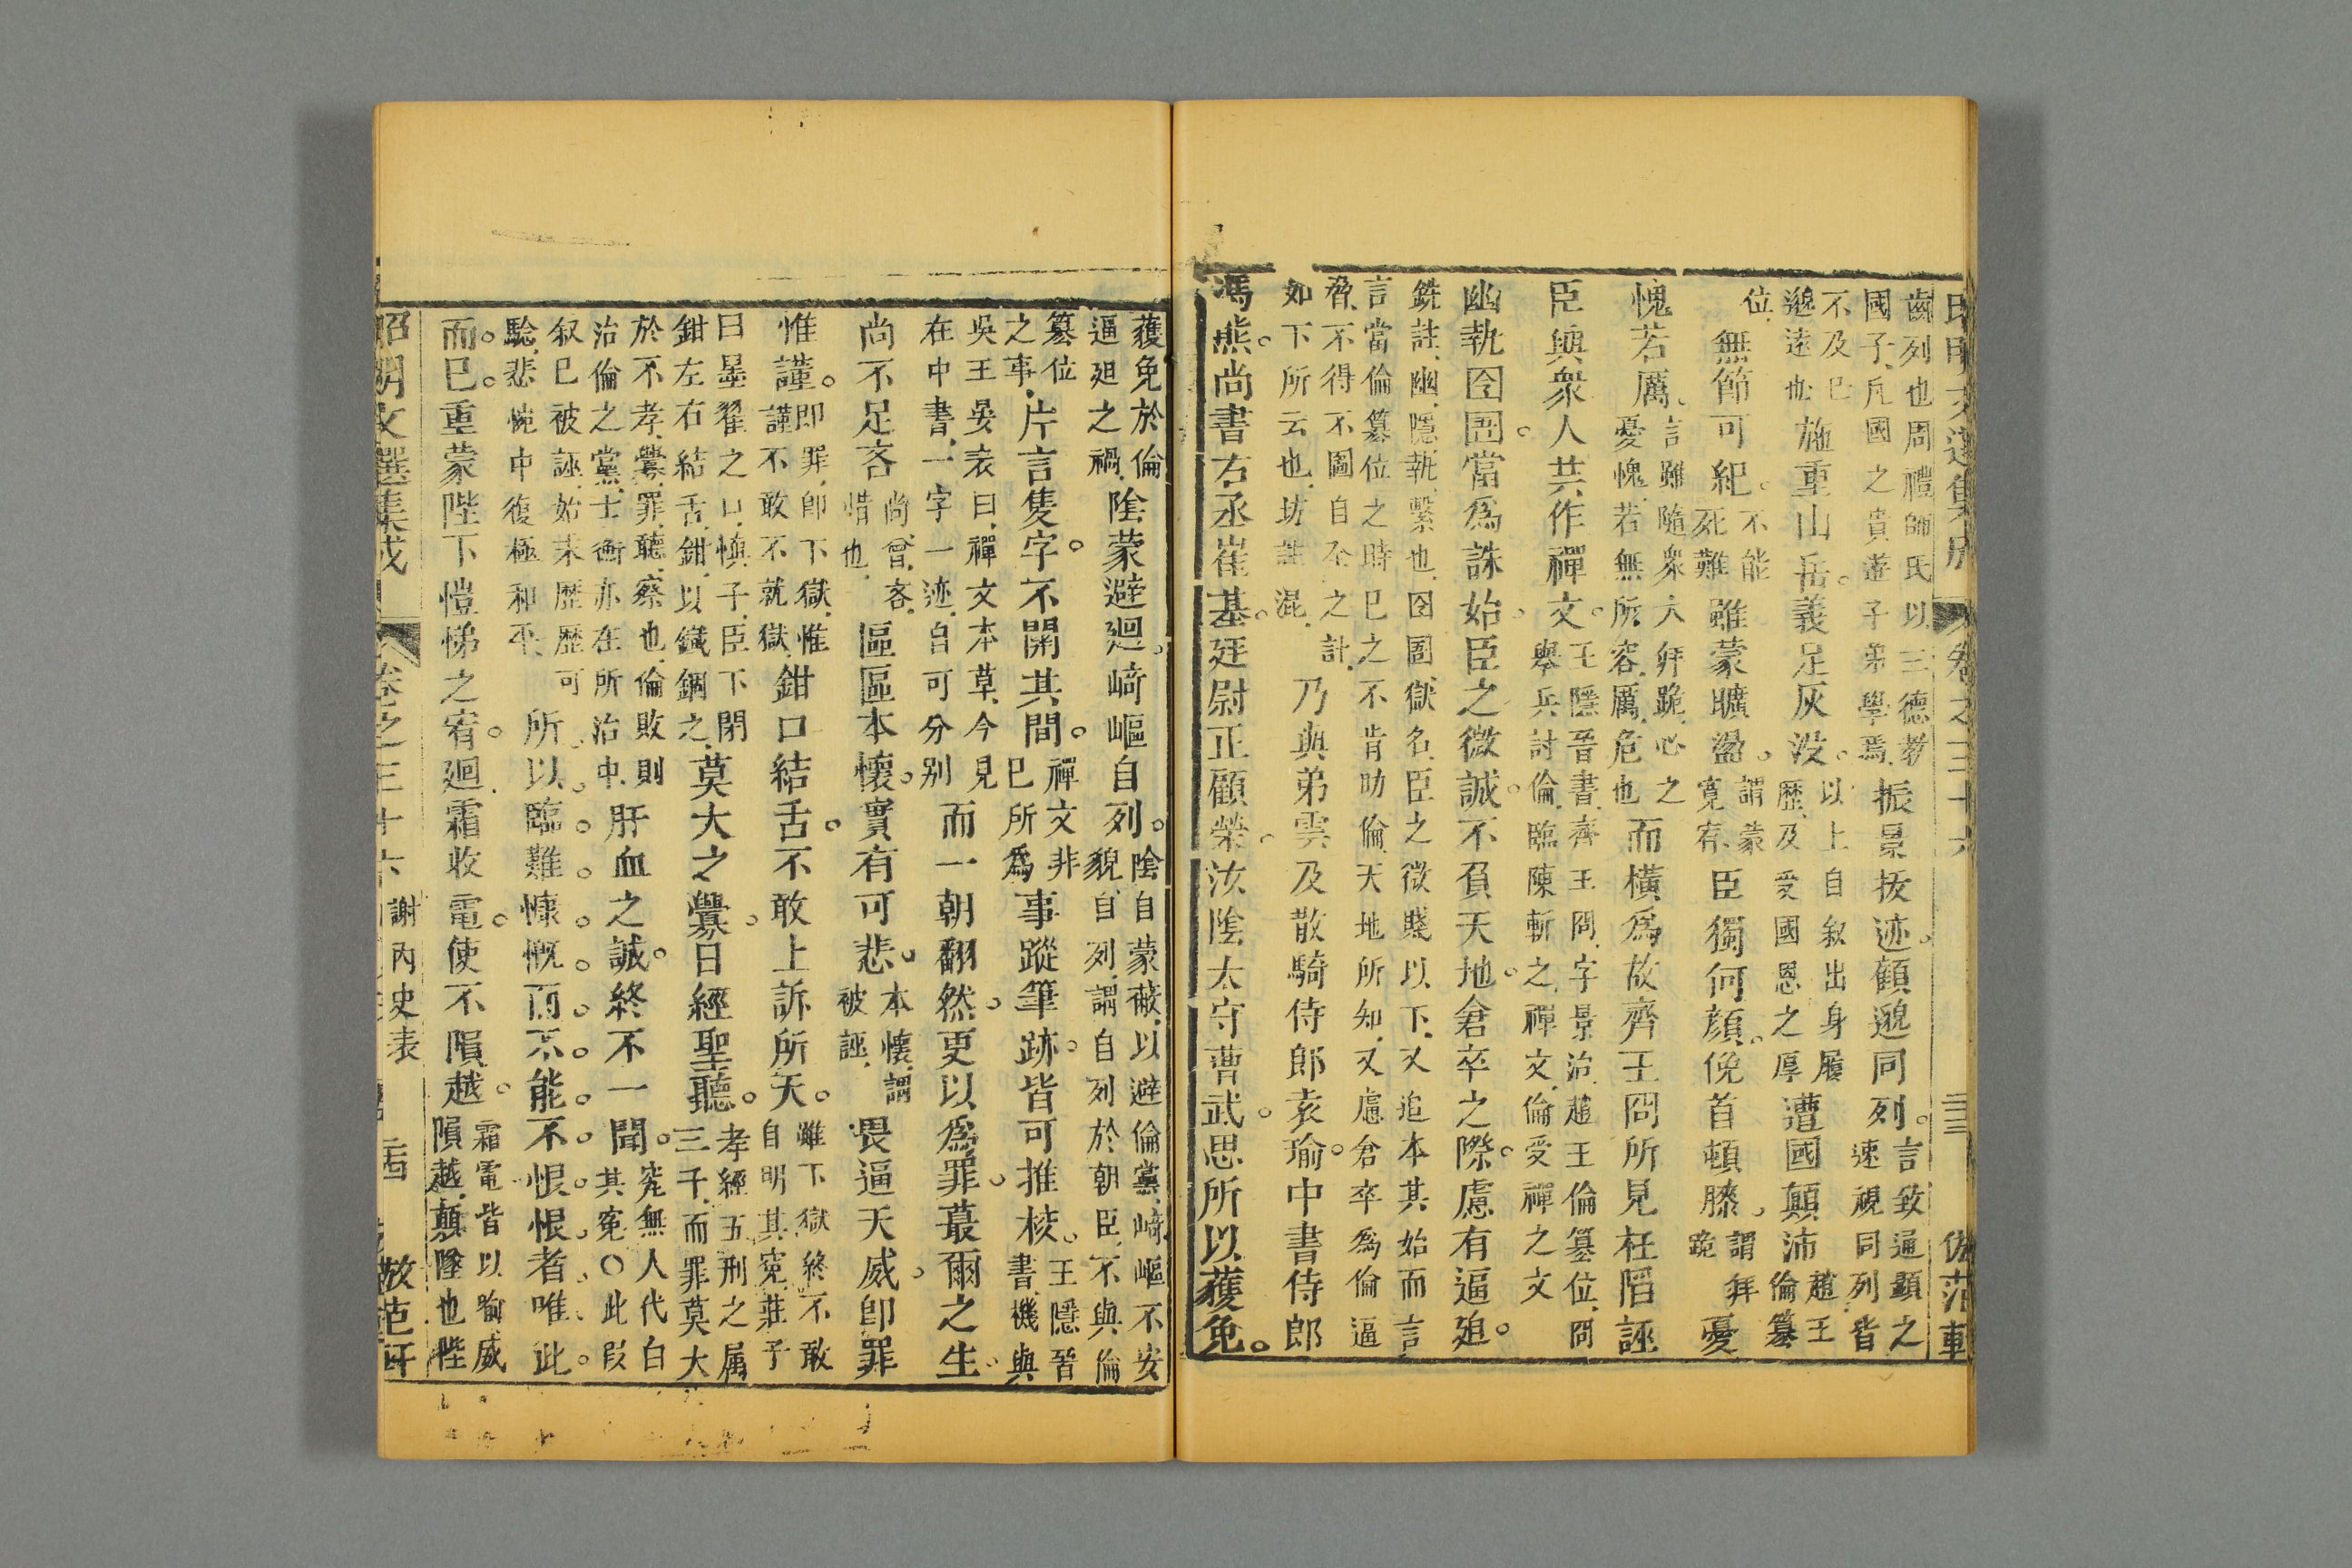 昭明文選集成 卷之三十六 三三 倣范軒
齒列也周禮師氏以三德教
國子凡國之貴遊子弟學焉振景拔迹顧邈同列言致通顯之速視同列皆
不及已
邈遠也施重山岳義足灰沒以上自叙出身履歷及受國恩之厚遭國顛沛趙王倫篡
位無節可紀不能死難雖蒙曠盪謂蒙寬宥臣獨何顏俛首頓膝謂拜跪憂
愧若厲言雖隨衆人拜跪心之憂愧若無所容厲危也而橫爲故齊王冏所見枉陷誣
臣與衆人共作禪文王隱晉書齊王冏字景治趙王倫篡位冏舉兵討倫臨陳斬之禪文倫受禪之文
幽執囹圄當爲誅始臣之微誠不負天地倉卒之際慮有逼廹
銑註幽隱執繫也囹圄獄名臣之微賤以下又追本其始而言
言當倫篡位之時已之不肯助倫天地所知又慮倉卒爲倫逼
脅不得不圖自全之計
如下所云也坊註混乃與弟雲及散騎侍郎袁瑜中書侍郎
馮熊尚書右丞崔基廷尉正顧榮汝陰太守曹武思所以獲免
獲免於倫逼廹之禍陰蒙避廻崎嶇自列陰自蒙蔽以避倫黨崎嶇不安貌自列謂自列於朝臣不與倫
篡位之事片言隻字不關其間禪文非已所爲事蹤筆跡皆可推校王隱晉書機與
吳王晏表曰禪文本草今見
在中書一字一迹自可分别而一朝翻然更以爲罪蕞爾之生
尚不足吝尚曾吝惜也區區本懷實有可悲本懷謂被誣畏逼天威卽罪
惟謹卽罪卽下獄惟謹不敢不就獄鉗口結舌不敢上訴所天雖下獄終不敢自明其寃莊子
曰墨翟之口慎子臣下閉
鉗左右結舌鉗以鐵錮之莫大之釁日經聖聽孝經五刑之属三千而罪莫大
於不孝釁罪聽察也倫敗則
治倫之黨士衡亦在所治中肝血之誠終不一聞寃無人代白其寃〇此叚
叙已被誣始末歷歷可
騐悲惋中復極和平所以臨難慷慨而不能不恨恨者唯此
而已重蒙陛下愷悌之宥廻霜收電使不隕越霜電皆以喻威隕越顛墜也陛
昭明文選集成 卷之三十六 謝內史表 三四 倣范軒